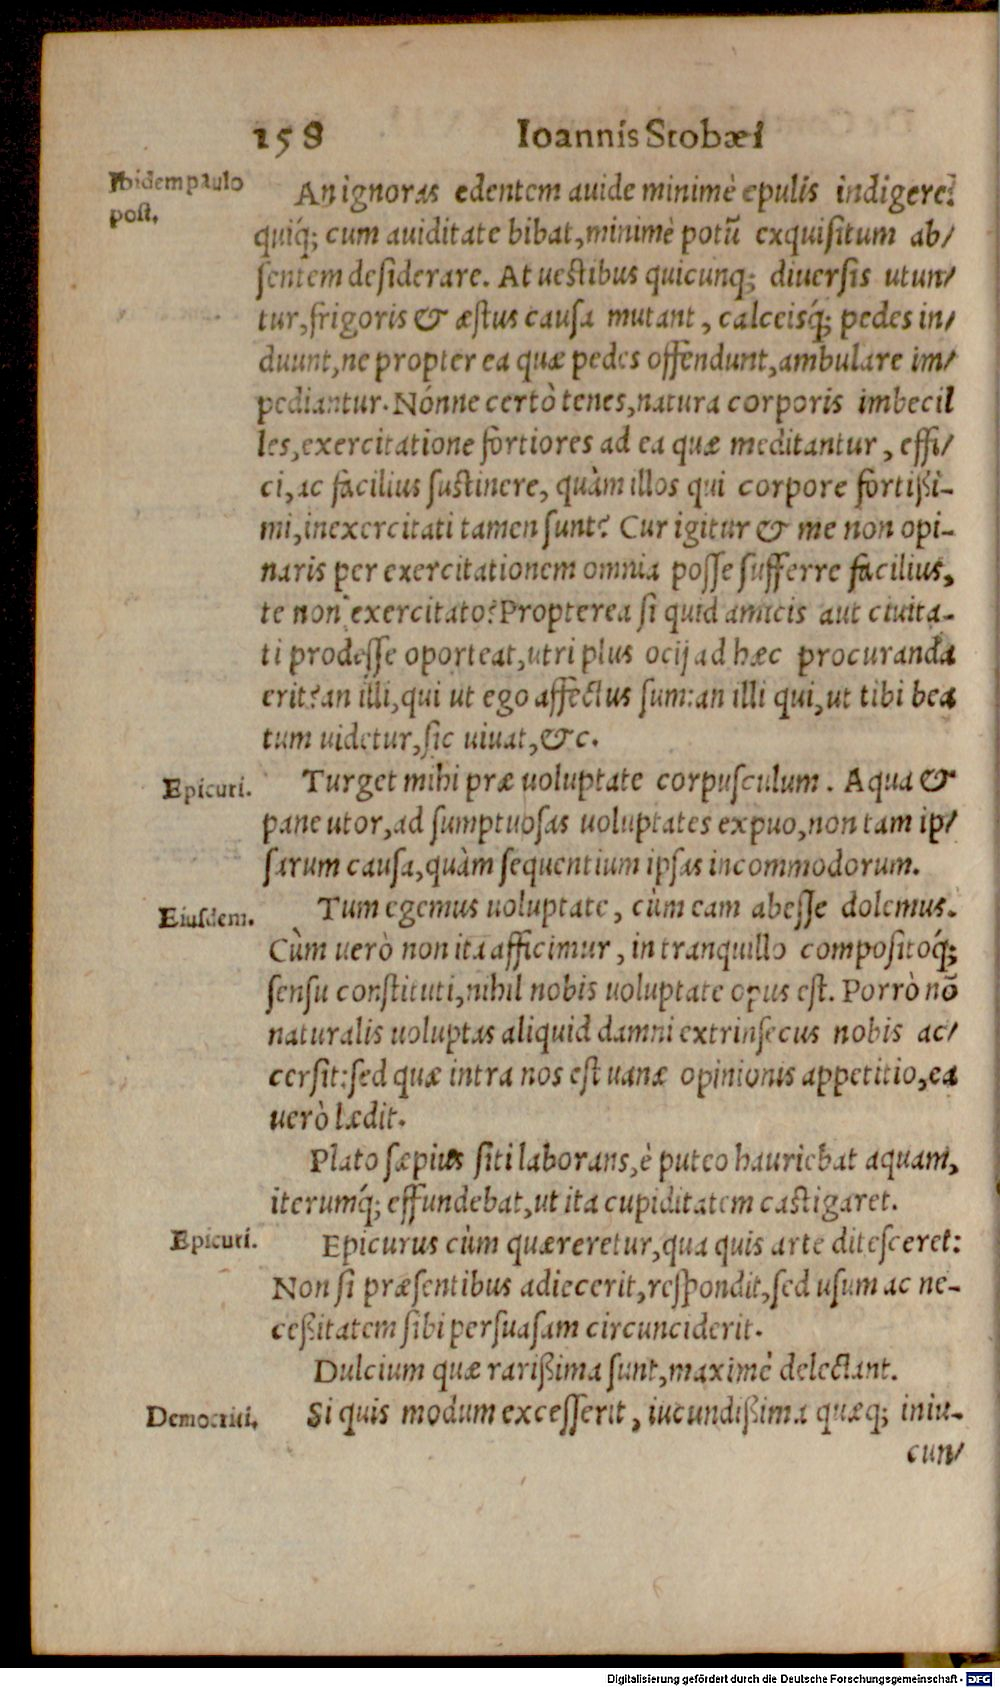 158 Ioannis Stobæi
Ibidem paulo
post.
An ignoras edentem auide minimè epulis indigere?
quiq́; cum auiditate bibat, minimè potũ exquisitum ab/
sentem desiderare. At uestibus quicunq; diuersis utun/
tur, frigoris & æstus causa mutant, calceisq́; pedes in/
duunt, ne propter ea quæ pedes offendunt, ambulare im/
pediantur. Nónne certò tenes, natura corporis imbecil
les, exercitatione fortiores ad ea quæ meditantur, effi/
ci, ac facilius sustinere, quàm illos qui corpore fortißi-
mi, inexercitati tamen sunt? Cur igitur & me non opi-
naris per exercitationem omnia posse sufferre facilius,
te non exercitato? Propterea si quid amicis aut ciuita-
ti prodesse oporteat, utri plus ocij ad hæc procuranda
erit? an illi, qui ut ego affectus sum: an illi qui, ut tibi bea
tum uidetur, sic uiuat, &c.
Epicuri.
Turget mihi præ uoluptate corpusculum. Aqua &
pane utor, ad sumptuosas uoluptates expuo, non tam ip/
sarum causa, quàm sequentium ipsas incommodorum.
Eiusdem.
Tum egemus uoluptate, cùm eam abesse dolemus.
Cùm uerò non ita afficimur, in tranquillo compositoq́;
sensu constituti, nihil nobis uoluptate opus est. Porrò nõ
naturalis uoluptas aliquid damni extrinsecus nobis ac/
cersit: sed quæ intra nos est uanæ opinionis appetitio, ea
uerò lædit.
Plato sæpius siti laborans, è puteo hauriebat aquam,
iterumq́; effundebat, ut ita cupiditatem castigaret.
Epicuri.
Epicurus cùm quæreretur, qua quis arte ditesceret:
Non si præsentibus adiecerit, respondit, sed usum ac ne-
ceßitatem sibi persuasam circunciderit.
Dulcium quæ rarißima sunt, maximè delectant.
Democriti.
Si quis modum excesserit, iucundißima quæq; iniu-
cun/
Digitalisierung gefördert durch die Deutsche Forschungsgemeinschaft - DFG